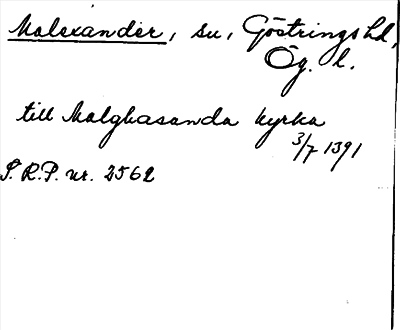 Malexander, su, Göstrings hd,
Ög. l.
till Malghasanda kyrka
3/7 1391
S. R.P. nr. 2562